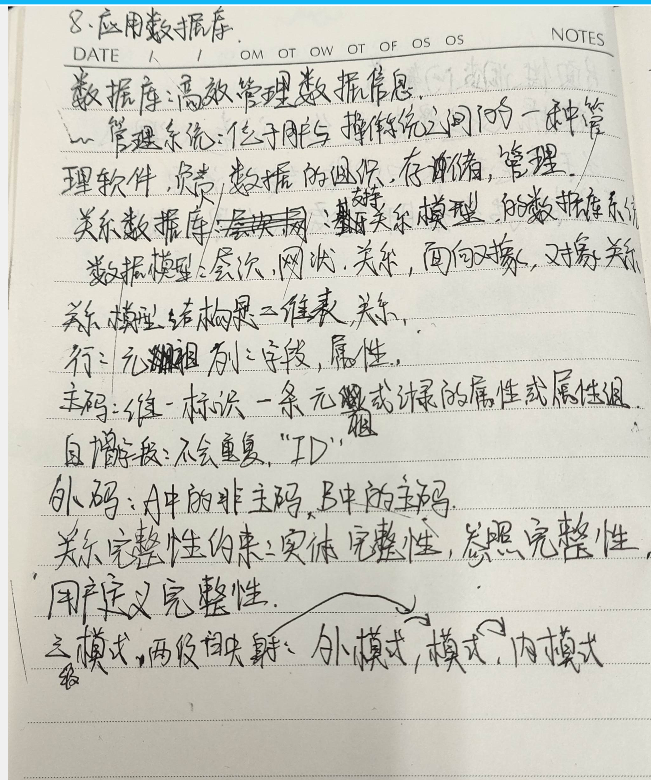 8.应用数据库.
DATE / / OM OT OW OT OF OS OS NOTES
数据库:高效管理数据信息.
~ 管理系统:位于用户与操作系统之间的一种管
理软件,负责数据的组织.存储,管理.
关系数据库:支持关系模型的数据库系统
数据模型:层次,网状.关系,面向对象,对象关系
关系模型结构是二维表,关系,
行:元组 列:字段,属性,
主码:唯一标识一条元组或记录的属性或属性组.
自增字段:不会重复,"ID"
外码:A中的非主码,B中的主码.
关系完整性约束:实体完整性,参照完整性,
用户定义完整性.
三级模式,两级映射:外模式,模式,内模式